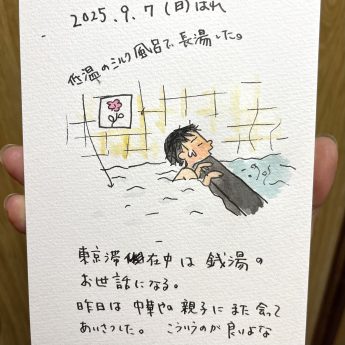 2025.9.7(日)はれ
低温のミルク風呂で長湯した。
東京滞在中は銭湯の
お世話になる。
昨日は中華やの親子にまた会って
あいさつした。こういうのが良いよな